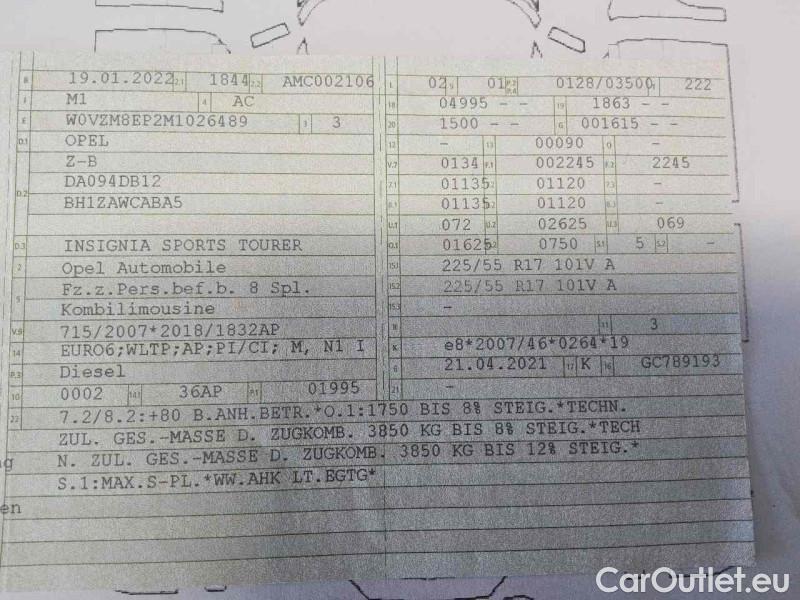 B 19.01.2022 2.1 1844 2.2 AMC002106
J M1 4 AC
E W0VZM8EP2M1026489 3 3
D.1 OPEL
Z-B
D.2 DA094DB12
BH1ZAWCABA5
D.3 INSIGNIA SPORTS TOURER
2 Opel Automobile
5 Fz.z.Pers.bef.b. 8 Spl.
Kombilimousine
V.9 715/2007*2018/1832AP
14 EURO6;WLTP;AP;PI/CI; M, N1 I
P.3 Diesel
10 0002 14.1 36AP P.1 01995
L 02 9 01 P.2 P.4 0128/03500 T 222
18 04995 - - 19 1863 - -
20 1500 - - G 001615 - -
12 - 13 00090 Q -
V.7 0134 F.1 002245 F.2 2245
7.1 01135 7.2 01120 7.3 -
8.1 01135 8.2 01120 8.3 -
U.1 072 U.2 02625 U.3 069
O.1 01625 O.2 0750 S.1 5 S.2 -
15.1 225/55 R17 101V A
15.2 225/55 R17 101V A
15.3 -
R 11 3
K e8*2007/46*0264*19
6 21.04.2021 17 K 16 GC789193
21 -
22 7.2/8.2:+80 B.ANH.BETR.*O.1:1750 BIS 8% STEIG.*TECHN.
ZUL. GES.-MASSE D. ZUGKOMB. 3850 KG BIS 8% STEIG.*TECH
N. ZUL. GES.-MASSE D. ZUGKOMB. 3850 KG BIS 12% STEIG.*
S.1:MAX.S-PL.*WW.AHK LT.EGTG*
en
CarOutlet.eu